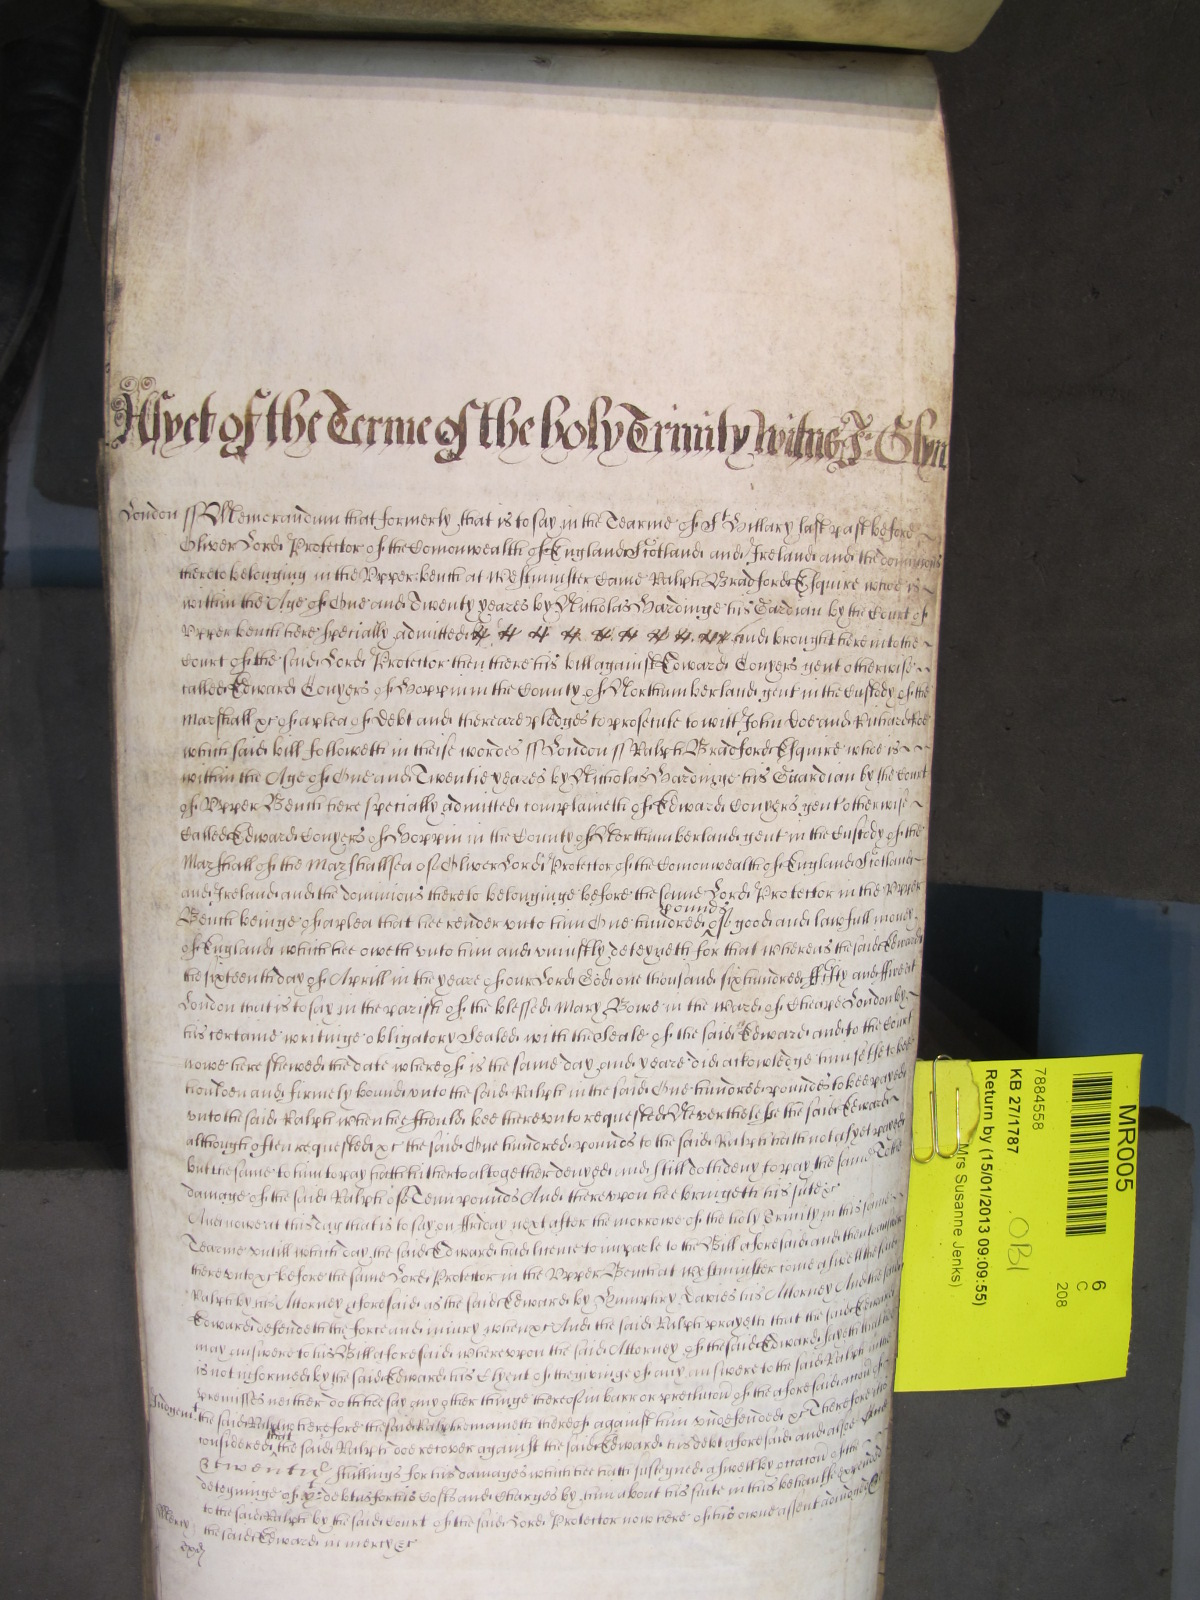 As yet of the Terme of the holy Trinity Witnes J: Glyn
London ss Memorandum that formerly that is to say in the Tearme of St Hillary last past before
Oliver Lord Protector of the Comonwealth of England Scotland and Ireland and the dominions
thereto belonging in the Upper bench at Westminster Came Ralph Bradford Esquire whoe is
within the Age of One and Twenty yeares by Nicholas Hardinge his Gardian by the Court of
Upper bench here specially admitted and brought here into the
Court of the said Lord Protector then there his bill against Edward Conyers gent otherwise
called Edward Conyers of Hoppin in the County of Northumberland gent in the Custody of the
Marshall &c of a plea of Debt and there are pledges to prosecute to witt John Doe and Richard Roe
which said bill followeth in theise wordes ss London ss Ralph Bradford Esquire whoe is
within the Age of One and Twentie yeares by Nicholas Hardinge his Guardian by the Court
of Upper Bench here specially admitted complaineth of Edward Conyers gent otherwise
Called Edward Conyers of Hoppin in the County of Northumberland gent in the Custody of the
Marshall of the Marshallsea of Oliver Lord Protector of the Comonwealth of England Scotland
and Ireland and the dominions thereto belonginge before the same Lord Protector in the Upper
Bench beinge of a plea that hee render unto him One hundred pounds of good and lawfull money
of England which hee oweth unto him and uniustly deteyneth for that whereas the said Edward
the sixteenth day of Aprill in the yeare of our Lord God one thousand six hundred fifty and five att
London that is to say in the parish of the blessed Mary Bowe in the ward of Cheape London by
his certaine writinge obligatory Sealed with the Seale of the said Edward and to the Court
nowe here shewed the date whereof is the same day and yeare did acknowledge himselfe to bee
houlden and firmely bound unto the said Ralph in the said One hundred pounds to bee payed
unto the said Ralph when hee should bee thereunto requested Neverthelesse the said Edward
although often requested &c the said One hundred pounds to the said Ralph hath not as yet payed
but the same to him to pay hath hitherto altogether denyed and still doth deny to pay the same To the
damage of the said Ralph of Tenn pounds And thereupon hee bringeth his suite &c
And nowe at this day that is to say on Friday next after the morrowe of the holy Trinity in this same
Tearme untill which day the said Edward had licence to imparle to the Bill aforesaid and then to answere
thereunto &c before the same Lord Protector in the Upper Bench at Westminster come aswell the said
Ralph by his Attorney aforesaid as the said Edward by Humphry Davies his Attorney And the said
Edward defendeth the force and iniury when &c And the said Ralph prayeth that the said Edward
may answere to his Bill aforesaid whereupon the said Attorney of the said Edward sayeth that hee
is not informed by the said Edward his Clyent of the givinge of any answere to the said Ralph in the
premisses neither doth hee say any other thinge thereof in barr or preclucon of the aforesaid accon of
Judgent the said Ralph therefore the said Ralph remaineth thereof against him undefended &c Therefore it is
considered that the said Ralph doe recover against the said Edward his debt aforesaid and alsoe
twenty shillings for his damages which hee hath susteyned aswell by occacon of the
deteyninge of ye debt as for his Costs and Charges by him about his suite in this behaulfe expended
to the said Ralph by the said Court of the said Lord Protector now here of his owne assent adiudged
Mercy the said Edward in mercy &c
MR005
6
C
208
7884558
KB 27/1787
Return by (15/01/2013 09:09:55)
Mrs Susanne Jenks)
OBI